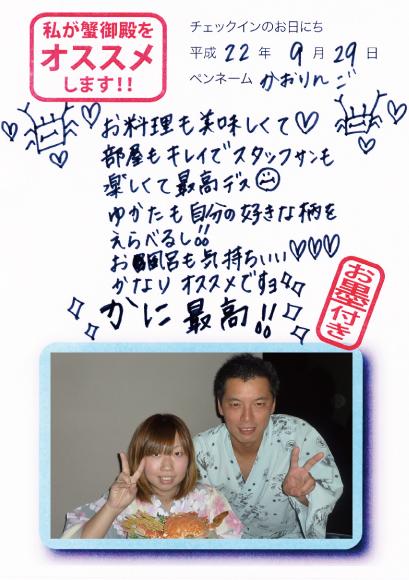 私が蟹御殿を
オススメ
します!!
チェックインのお日にち
平成 22 年 9 月 29 日
ペンネーム かおりんご
お料理も美味しくて♡
部屋もキレイでスタッフサンも
楽しくて最高デス☺
ゆかたも自分の好きな柄を
えらべるし!!
お風呂も気持ちいい♡♡♡
かなりオススメですョ
かに最高!!
お墨付き